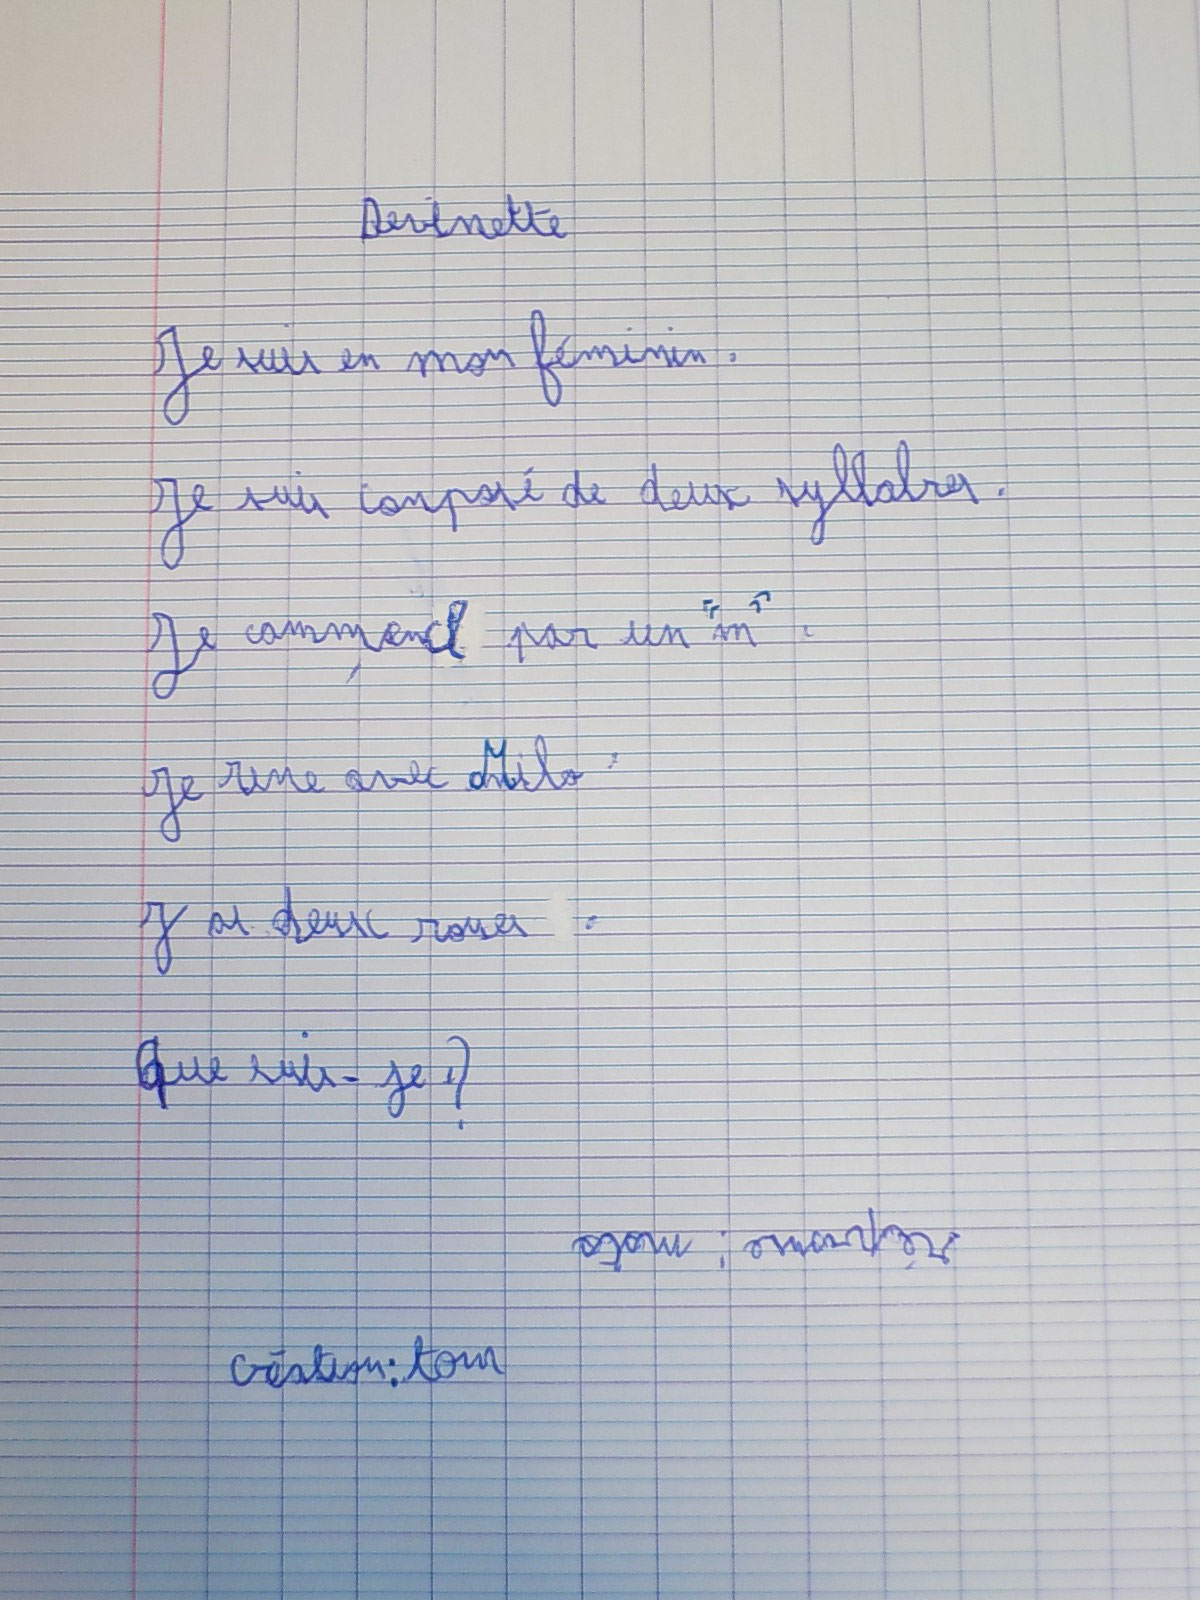 Devinette
Je suis en mon féminin.
Je suis composé de deux syllabes.
Je commence par un "m".
Je rime avec Milo.
J ai deux roues.
Que suis-je ?
réponse : moto
création: tom